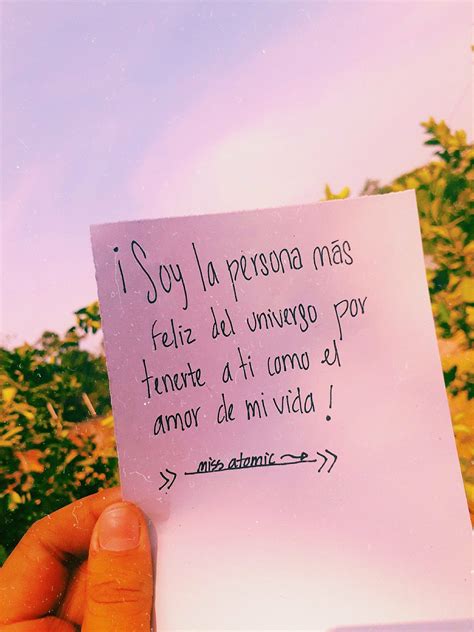 ¡Soy la persona más
feliz del universo por
tenerte a ti como el
amor de mi vida!
>> miss atomic >>